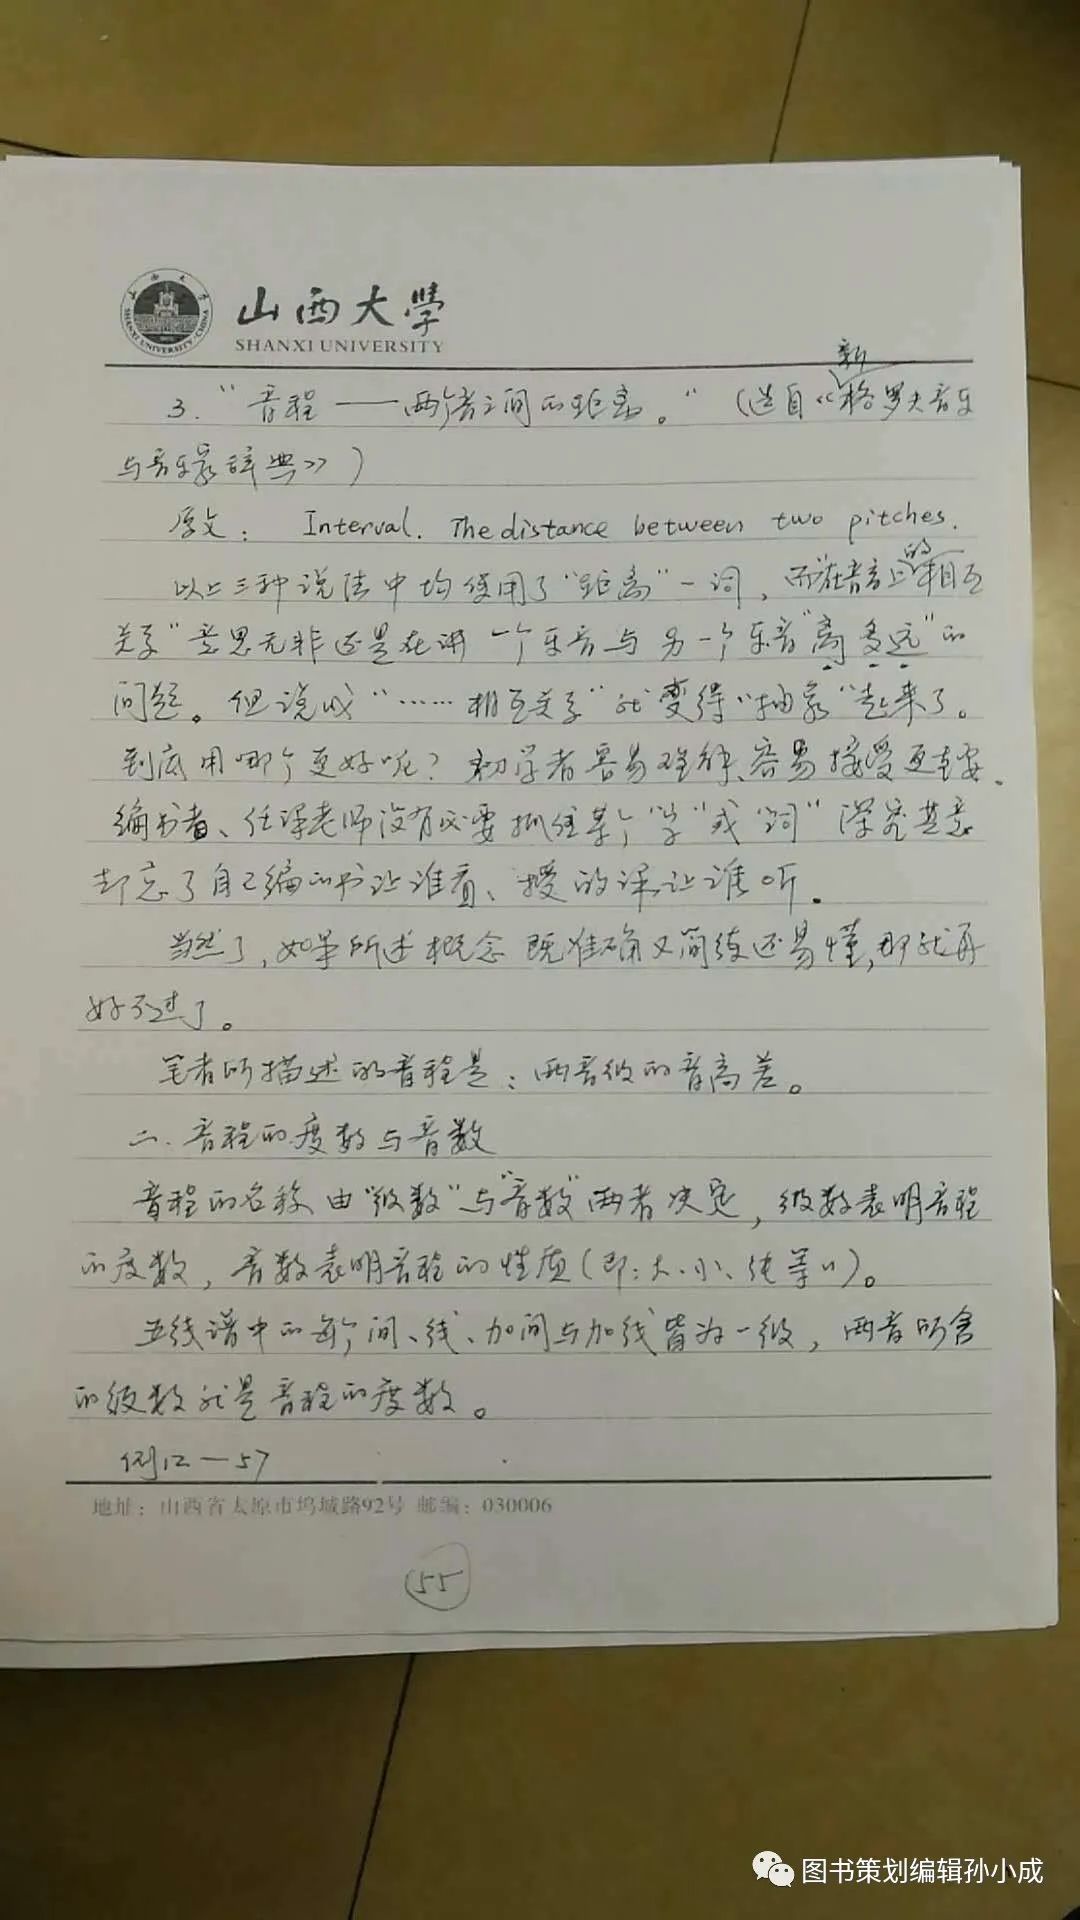 山西大學
SHANXI UNIVERSITY
3. "音程——两个音之间的距离。"(选自《新格罗夫音乐
与音乐家辞典》)
原文: Interval. The distance between two pitches.
以上三种说法中均使用了"距离"一词,而"在音高上的相互
关系"意思无非还是在讲一个乐音与另一个乐音"离多远"的
问题。但说成"……相互关系"就变得"抽象"起来了。
到底用哪个更好呢?初学者容易理解、容易接受更重要.
编书者、任课老师没有必要抓住某个"字"或"词"深究其意
却忘了自己编的书让谁看、授的课让谁听.
当然了,如果所述概念既准确又简练还易懂,那就再
好不过了。
笔者所描述的音程是:两音级的音高差。
二.音程的度数与音数
音程的名称由"级数"与"音数"两者决定,级数表明音程
的度数,音数表明音程的性质(即:大、小、纯等)。
五线谱中的每个间、线、加间与加线皆为一级,两音所含
的级数就是音程的度数。
例12—57
地址:山西省太原市坞城路92号 邮编:030006
55
图书策划编辑孙小成